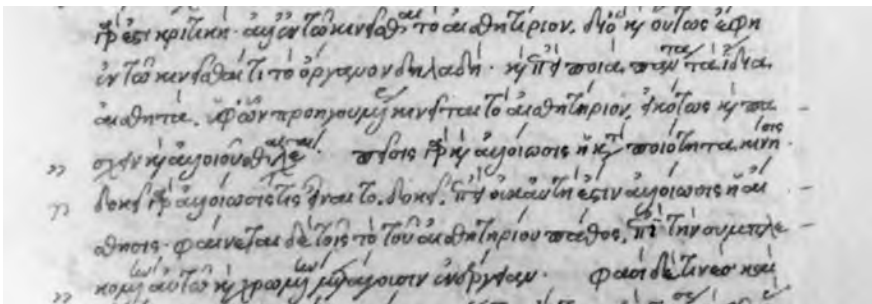 γάρ ἐστι κριτική· ἀλλ' ἐν τῷ κινεῖσθαι τὸ αἰσθητήριον. διὸ καὶ οὕτως ἔφη
ἐν τῷ κινεῖσθαί τι τὸ ὄργανον δηλαδή· καὶ ἐπεὶ ποιὰ πάντα τὰ ἴδια
αἰσθητά, ὑφ' ὧν προηγουμένως κινεῖται τὸ αἰσθητήριον, εἰκότως καὶ πά
σχειν καὶ ἀλλοιοῦσθαι λέγεται· πεῖσις γὰρ καὶ ἀλλοίωσις ἡ κατὰ ποιότητα κίνησις·
δοκεῖ γὰρ ἀλλοίωσίς τις εἶναι· τὸ δοκεῖ, ἐπεὶ οὐκ αὐτή ἐστιν ἀλλοίωσις ἡ αἴ
σθησις· φαίνεται δὲ τοῖς τὸ τοῦ αἰσθητηρίου πάθος, ἐπὶ τὴν συμπλε
κομένην αὐτῷ καὶ χρωμένην ἐνέργειαν. φασὶ δέ τινες